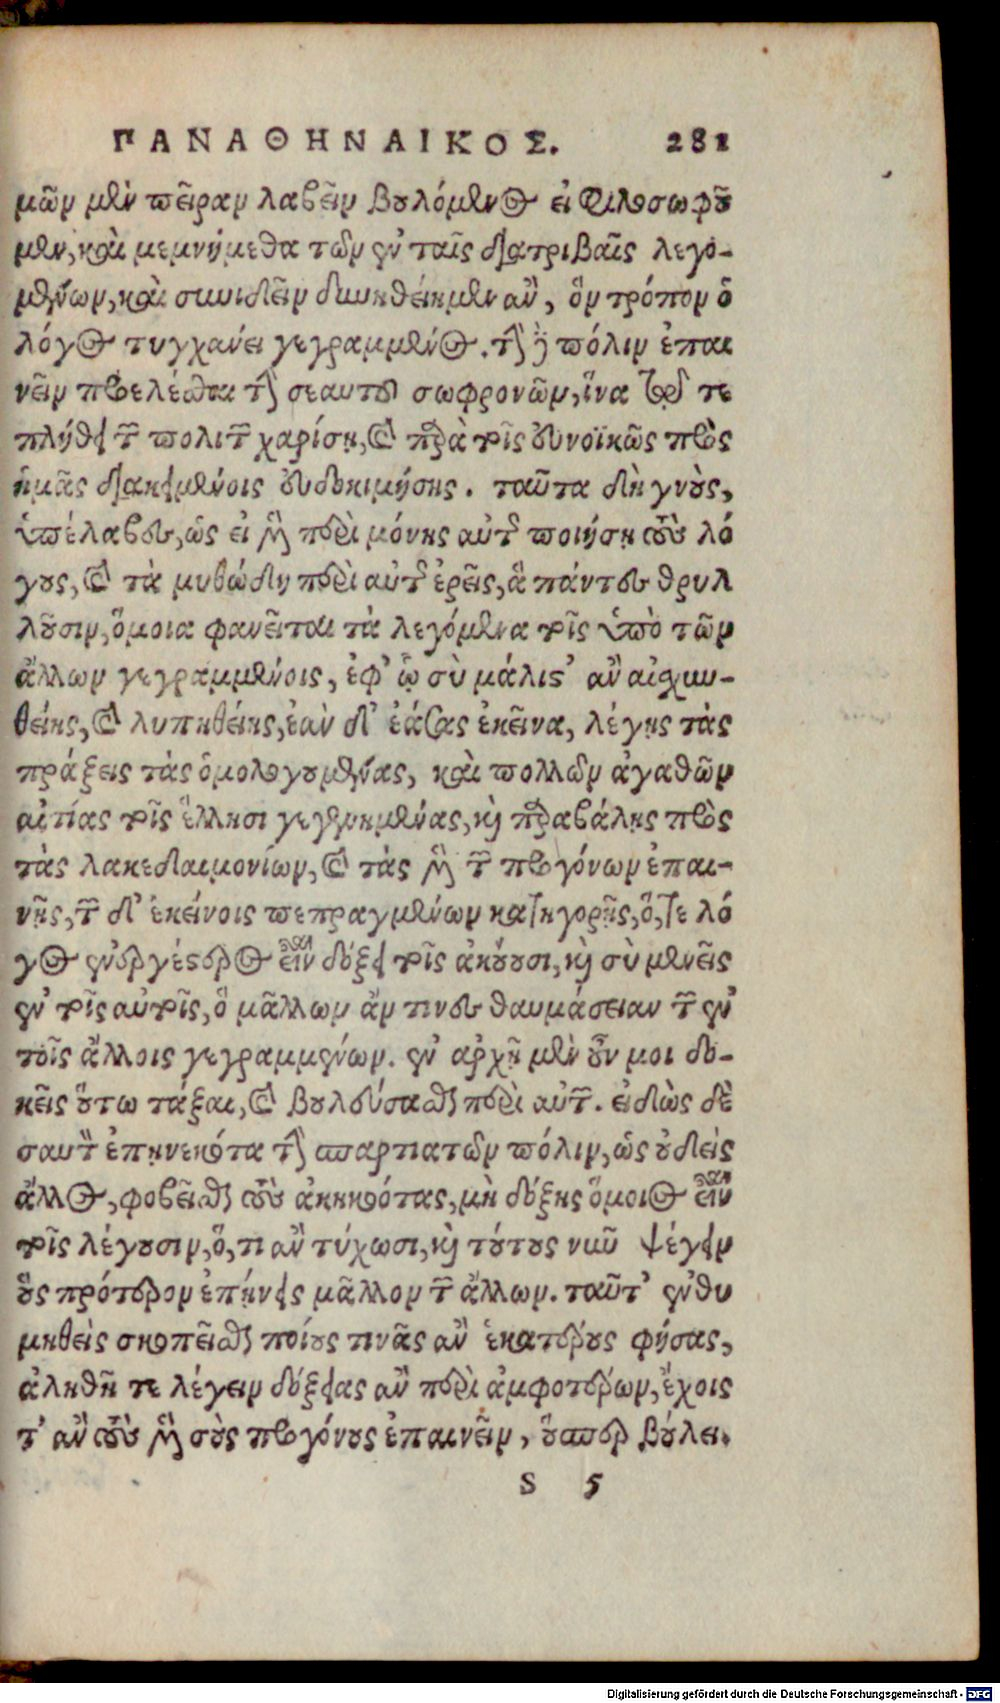 ΠΑΝΑΘΗΝΑΙΚΟΣ. 281
μῶν μὲν πεῖραν λαβεῖν βουλόμενος εἰ φιλοσοφοῦ
μεν, καὶ μεμνήμεθα τῶν ἐν ταῖς διατριβαῖς λεγο-
μένων, καὶ συνιδεῖν δυνηθείημεν ἂν, ὃν τρόπον ὁ
λόγος τυγχάνει γεγραμμένος. τὴν δὲ πόλιν ἐπαι
νεῖν προελέσθαι τὴν σεαυτοῦ σωφρονῶν, ἵνα τῷ τε
πλήθει τῶν πολιτῶν χαρίσῃ, καὶ παρὰ τοῖς εὐνοϊκῶς πρὸς
ἡμᾶς διακειμένοις εὐδοκιμήσης. ταῦτα δὴ γνοὺς,
ὑπέλαβες, ὡς εἰ μὲν περὶ μόνης αὐτῆς ποιήσῃ τοὺς λό
γους, καὶ τὰ μυθώδη περὶ αὐτῆς ἐρεῖς, ἃ πάντες θρυλ
λοῦσιν, ὅμοια φανεῖται τὰ λεγόμενα τοῖς ὑπὸ τῶν
ἄλλων γεγραμμένοις, ἐφ' ᾧ σὺ μάλιστ' ἂν αἰσχυν-
θείης, καὶ λυπηθείης, ἐὰν δ' ἐάσας ἐκεῖνα, λέγῃς τὰς
πράξεις τὰς ὁμολογουμένας, καὶ πολλῶν ἀγαθῶν
αἰτίας τοῖς ἕλλησι γεγενημένας, καὶ παραβάλῃς πρὸς
τὰς λακεδαιμονίων, καὶ τὰς μὲν τῶν προγόνων ἐπαι-
νῇς, τῶν δ' ἐκείνοις πεπραγμένων κατηγορῇς, ὅ, τε λό
γος ἐνεργέστερος εἶναι δόξει τοῖς ἀκούουσι, καὶ σὺ μενεῖς
ἐν τοῖς αὐτοῖς, ὃ μᾶλλων ἄν τινες θαυμάσειαν τῶν ἐν
τοῖς ἄλλοις γεγραμμένων. ἐν ἀρχῇ μὲν οὖν μοι δο-
κεῖς οὕτω τάξαι, καὶ βουλεύσασθαι περὶ αὐτῶν. εἰδὼς δὲ
σαυτὸν ἐπῃνεκότα τὴν σπαρτιατῶν πόλιν, ὡς οὐδεὶς
ἄλλος, φοβεῖσθαι τοὺς ἀκηκοότας, μὴ δόξης ὅμοιος εἶναι
τοῖς λέγουσιν, ὅ, τι ἂν τύχωσι, καὶ τούτους νῦν ψέγειν
οὓς πρότερον ἐπῄνεις μᾶλλον τῶν ἄλλων. ταῦτ' ἐνθυ
μηθεὶς σκοπεῖσθαι ποίους τινᾶς ἂν ἑκατέρους φήσας,
ἀληθῆ τε λέγειν δόξειας ἂν περὶ ἀμφοτέρων, ἔχοις
τ' ἂν τοὺς μὲν σοὺς προγόνους ἐπαινεῖν, οὕσπερ βούλει.
S 5
Digitalisierung gefördert durch die Deutsche Forschungsgemeinschaft - DFG